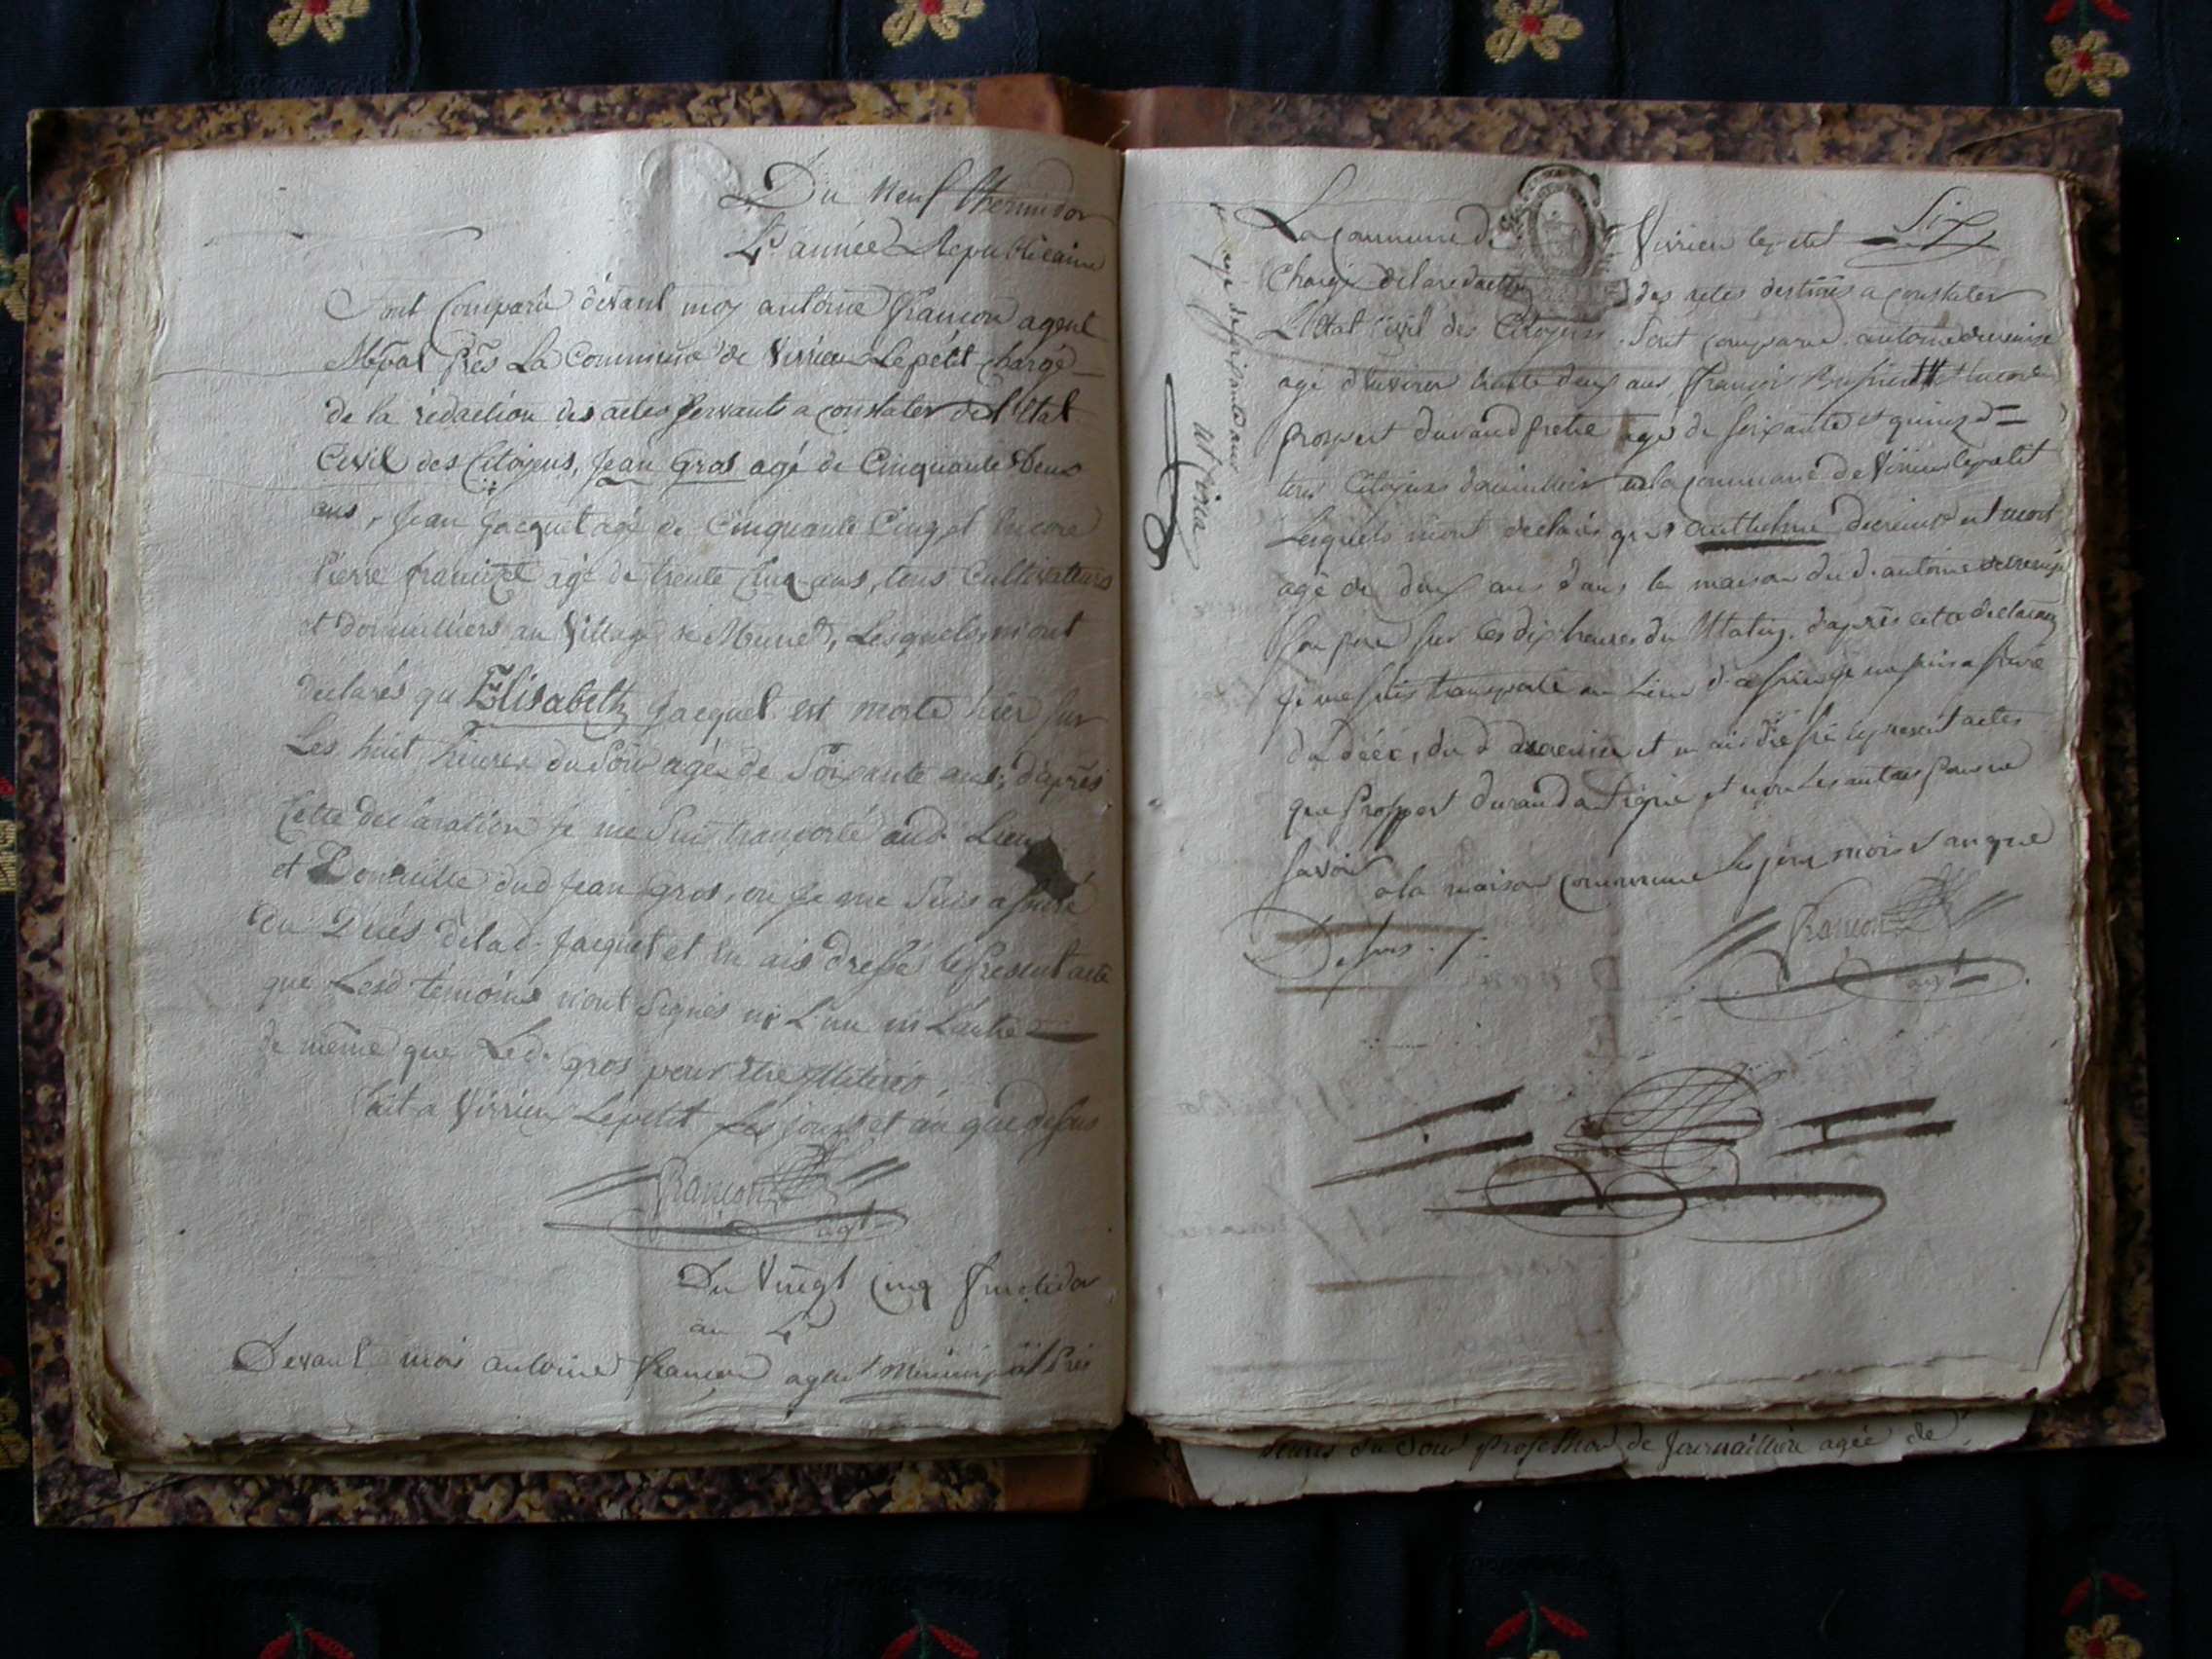 Du Neuf thermidor
4e année Republicaine
Sont Comparu devant moy antoine françon agent
Mpal près La Commune de Virrieu Le petit chargé
de la rédaction des actes servants a constater de l'Etat
Civil des Citoyens, Jean Gros agé de Cinquante deux
ans, Jean Jacquet agé de Cinquante Cinq et encore
Pierre agé de trente Cinq ans, tous Cultivateurs
et domicilliers au Village de Munet, Lesquels m'ont
declarés qu Elisabeth Jacquet est morte hier sur
Les huit heures du Soir agée de Soixante ans, d'après
Cette declaration Je me Suis transporté aud. Lieu
et Domicille dud Jean Gros, ou Je me Suis assuré
du Décés de la d. Jacquet et En ais dressé le présent acte
que Lesd témoins n'ont Signés ni L'un ni L'autre
de même que Led. Gros pour être illiterés.
fait a Virrieu Lepetit Les jours et an que dessus
françon
agt
Du Vingt Cinq fructidor
an 4e
Devant moi antoine françon agent Municipal Près
La Commune de Virrieu le petit Six
Chargé de la redaction des actes destinés a constater
L'Etat Civil des Citoyens. Sont comparu antoine
agé d'environ trente deux ans françois encore
prospert durand pretre agé de soixante et quinze
tous Citoyens domicilliers en la commune de Virieu le petit
Lesquels m'ont declarés que anthelme est mort
agé de deux ans dans la maison du d. antoine
son pere sur les dix heures du Matin. d'après cette declaration
Je me suis transporté au Lieu d. assuré
du décé, du d et en ais dressé le present actes
que Prospert durand a signé et non les autres pour ne
savoir a la maison commune les jour mois et an que
Dessus.
françon
agt
agé de soixante ans
heures du Soir profession de Journalliere agée de